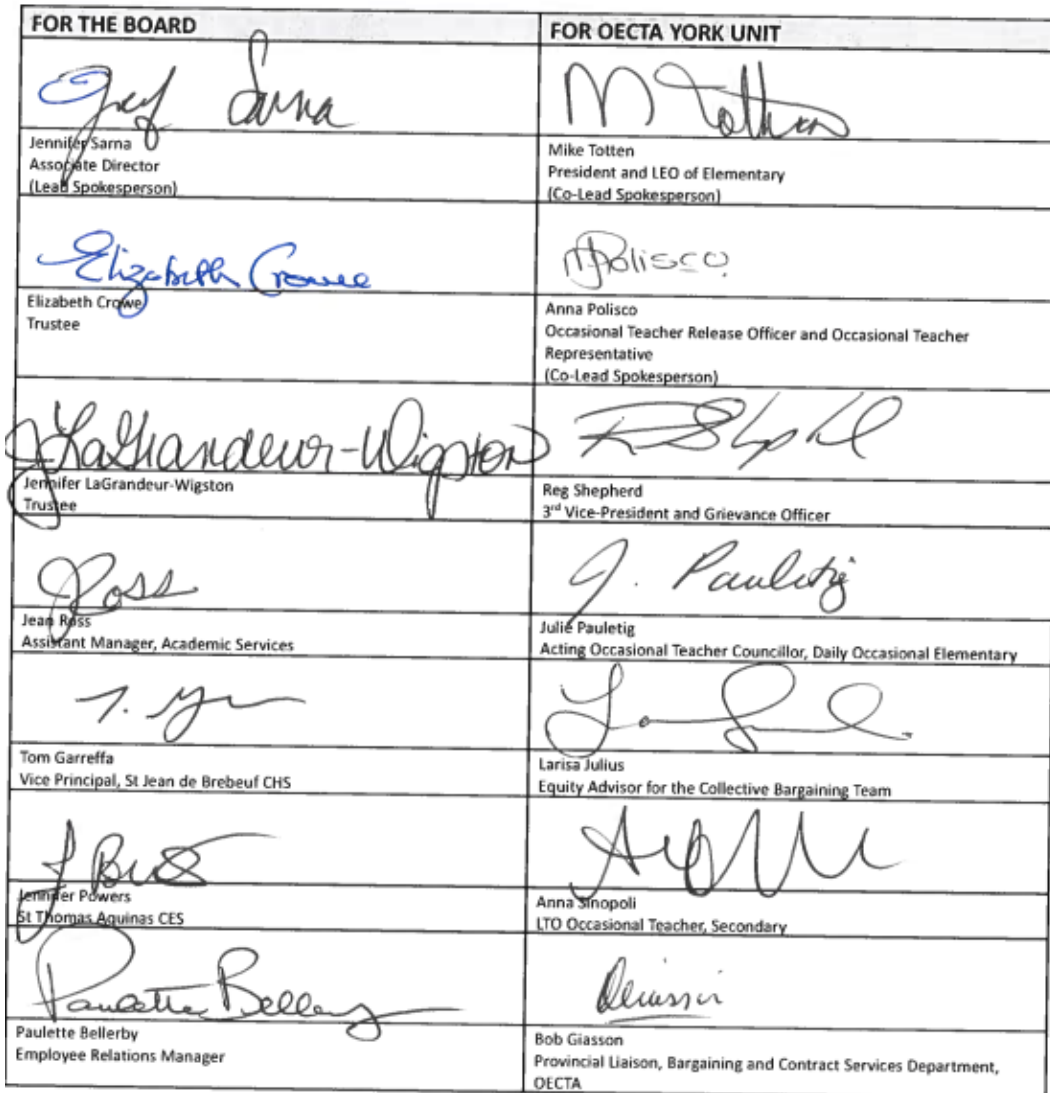 FOR THE BOARD
FOR OECTA YORK UNIT
Sarna
Jennifer Sarna
Associate Director
(Lead Spokesperson)
M Totten
Mike Totten
President and LEO of Elementary
(Co-Lead Spokesperson)
Elizabeth Crowe
Elizabeth Crowe
Trustee
Polisco
Anna Polisco
Occasional Teacher Release Officer and Occasional Teacher
Representative
(Co-Lead Spokesperson)
J LaGrandeur-Wigston
Jennifer LaGrandeur-Wigston
Trustee
Reg Shepherd
3rd Vice-President and Grievance Officer
J Ross
Jean Ross
Assistant Manager, Academic Services
J. Pauletig
Julie Pauletig
Acting Occasional Teacher Councillor, Daily Occasional Elementary
Tom Garreffa
Vice Principal, St Jean de Brebeuf CHS
Larisa Julius
Equity Advisor for the Collective Bargaining Team
Jennifer Powers
St Thomas Aquinas CES
Anna Sinopoli
LTO Occasional Teacher, Secondary
Paulette Bellerby
Paulette Bellerby
Employee Relations Manager
Bob Giasson
Provincial Liaison, Bargaining and Contract Services Department,
OECTA